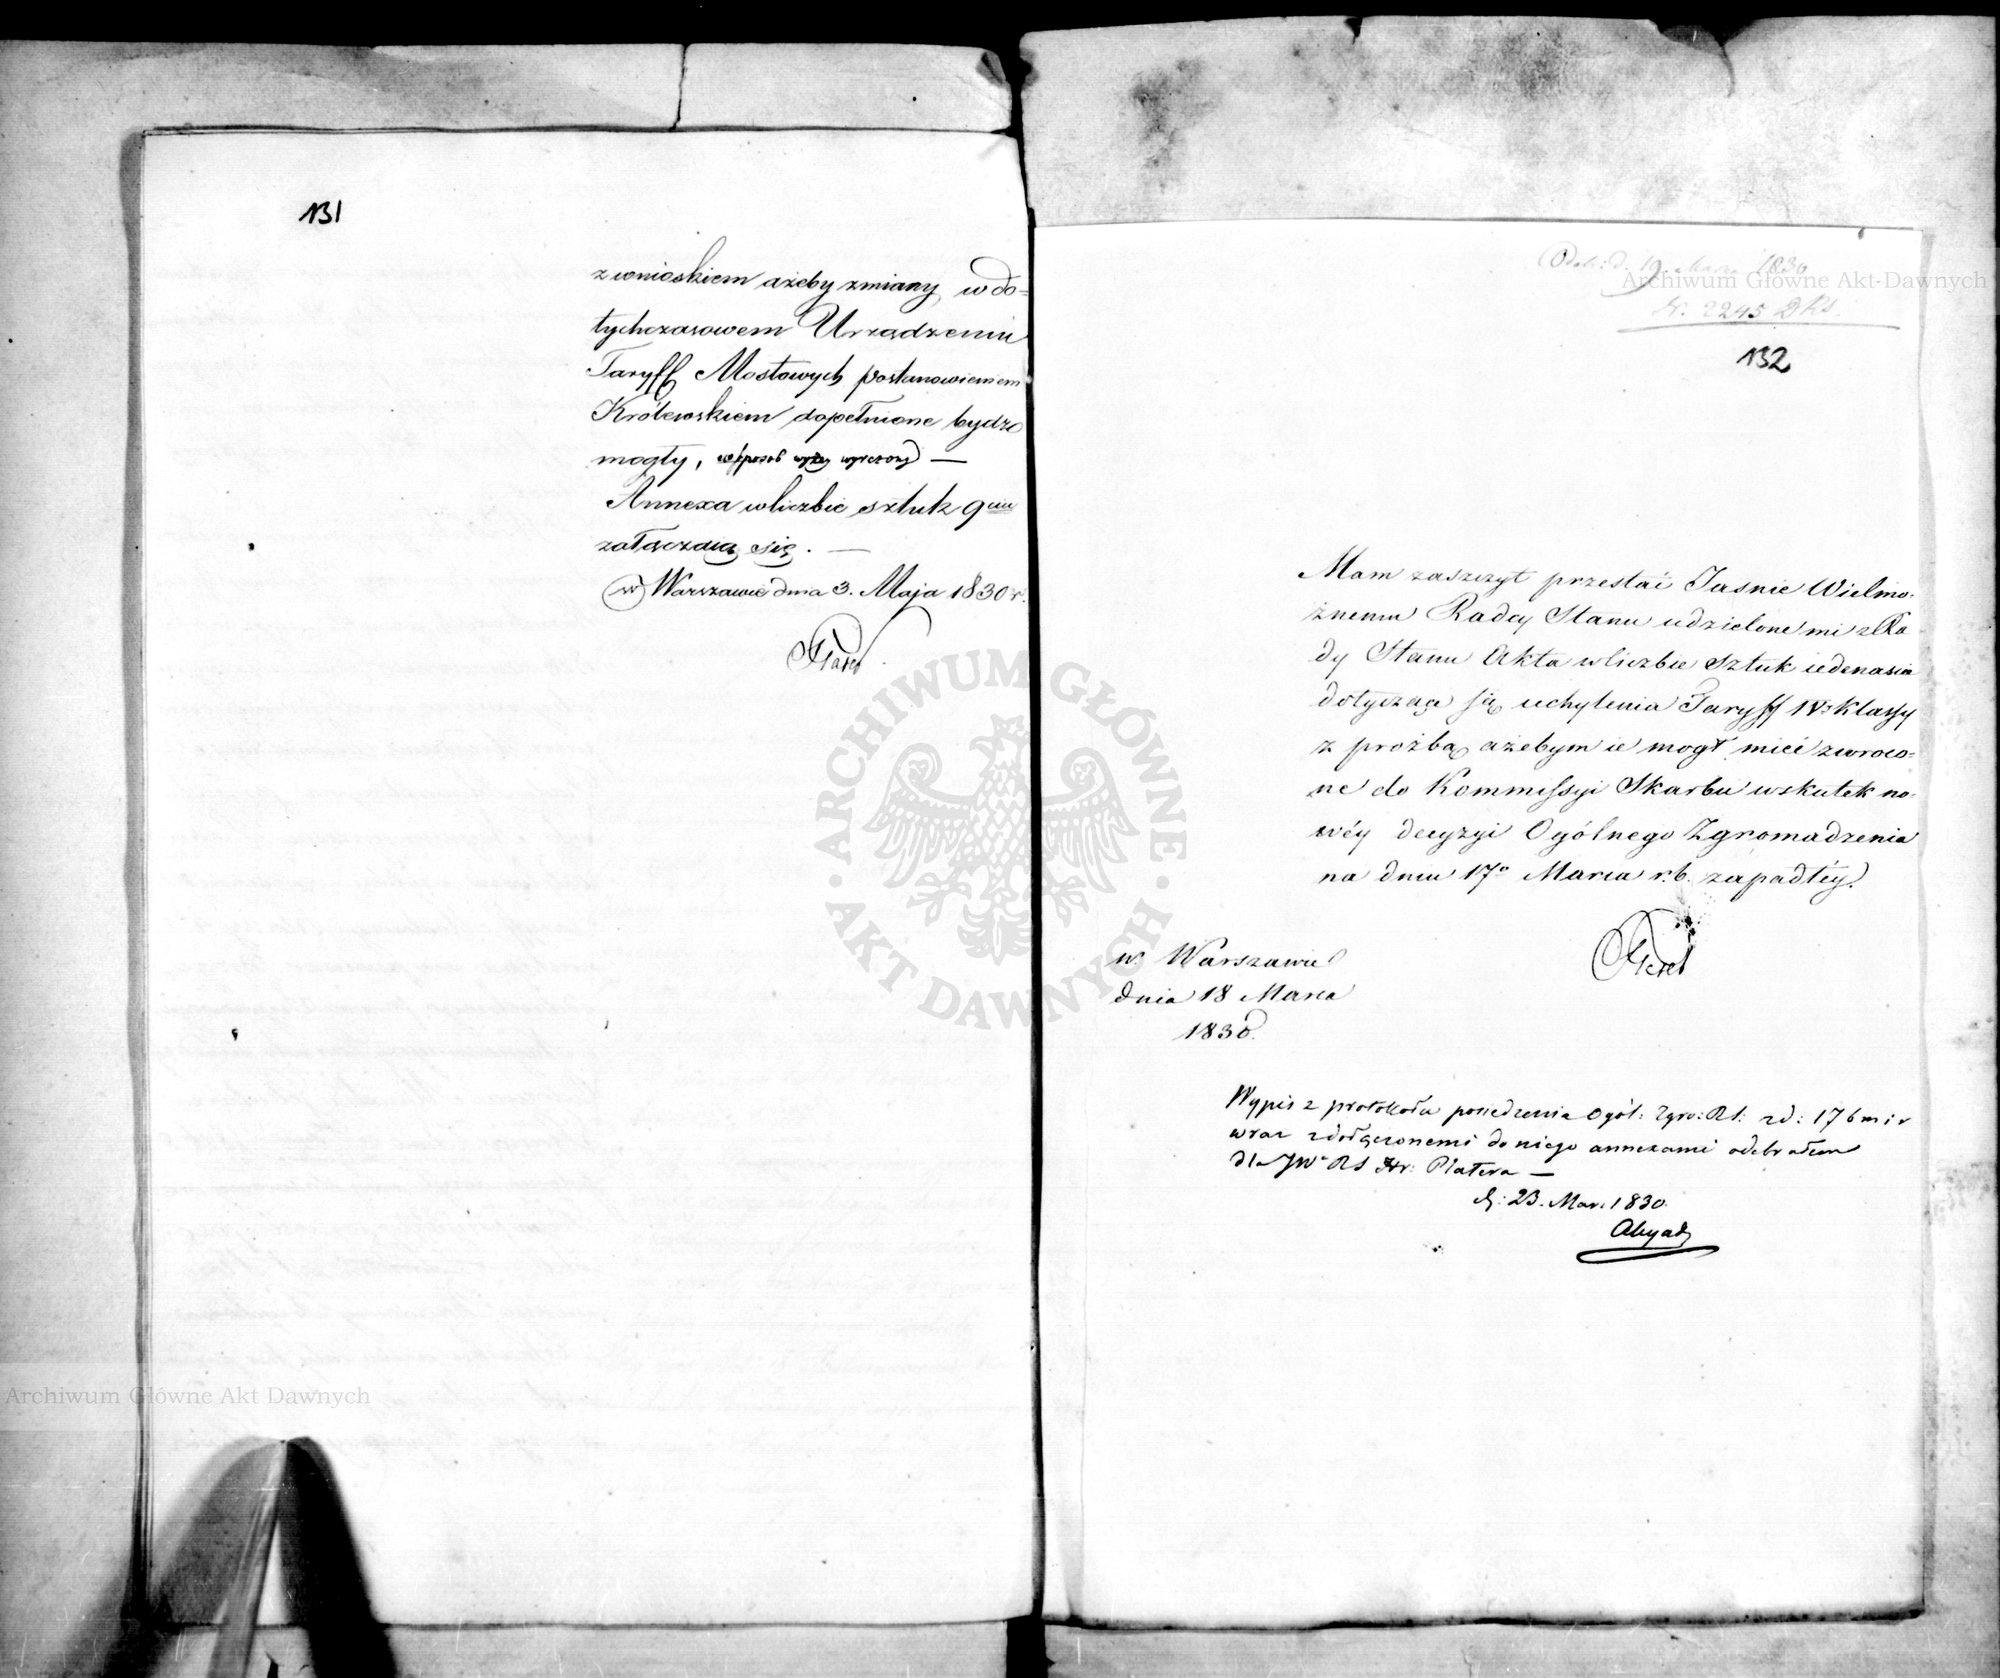 131
z wnioskiem ażeby zmiany w do=
tychczasowem Urządzeniu
Taryff Mostowych postanowieniem
Królewskiem dopełnione bydź
mogły, w sposób wyżey wyrzczony —
Annexa w liczbie sztuk 9ciu
załączaią się. —
w Warszawie dnia 3. Maja 1830 r.
Odeb: d. 19. Marca 1830
N. 2245
132
Mam zaszczyt przesłać Jaśnie Wielmo=
żnemu Radcy Stanu udzielone mi z Ra
dy Stanu Akta w liczbie sztuk iedenaście
dotyczące się uchylenia Taryff IV. Klassy
z proźbą ażebym ie mogł mieć zwroco=
ne do Kommissyi Skarbu wskutek no=
wéy decyzyi Ogólnego Zgromadzenia
na dniu 17o Marca r.b. zapadłéy.
w Warszawie
dnia 18 Marca
1830.
Wypis z protokołu posiedzenia Ogól: Zgro: RS: z d: 17 b m i r
wraz z dołączonemi do niego annexami odebrałem
dla JWo RS Hr: Platera —
d: 23. Mar. 1830.
ARCHIWUM GŁÓWNE AKT DAWNYCH
Archiwum Główne Akt Dawnych
Archiwum Główne Akt Dawnych